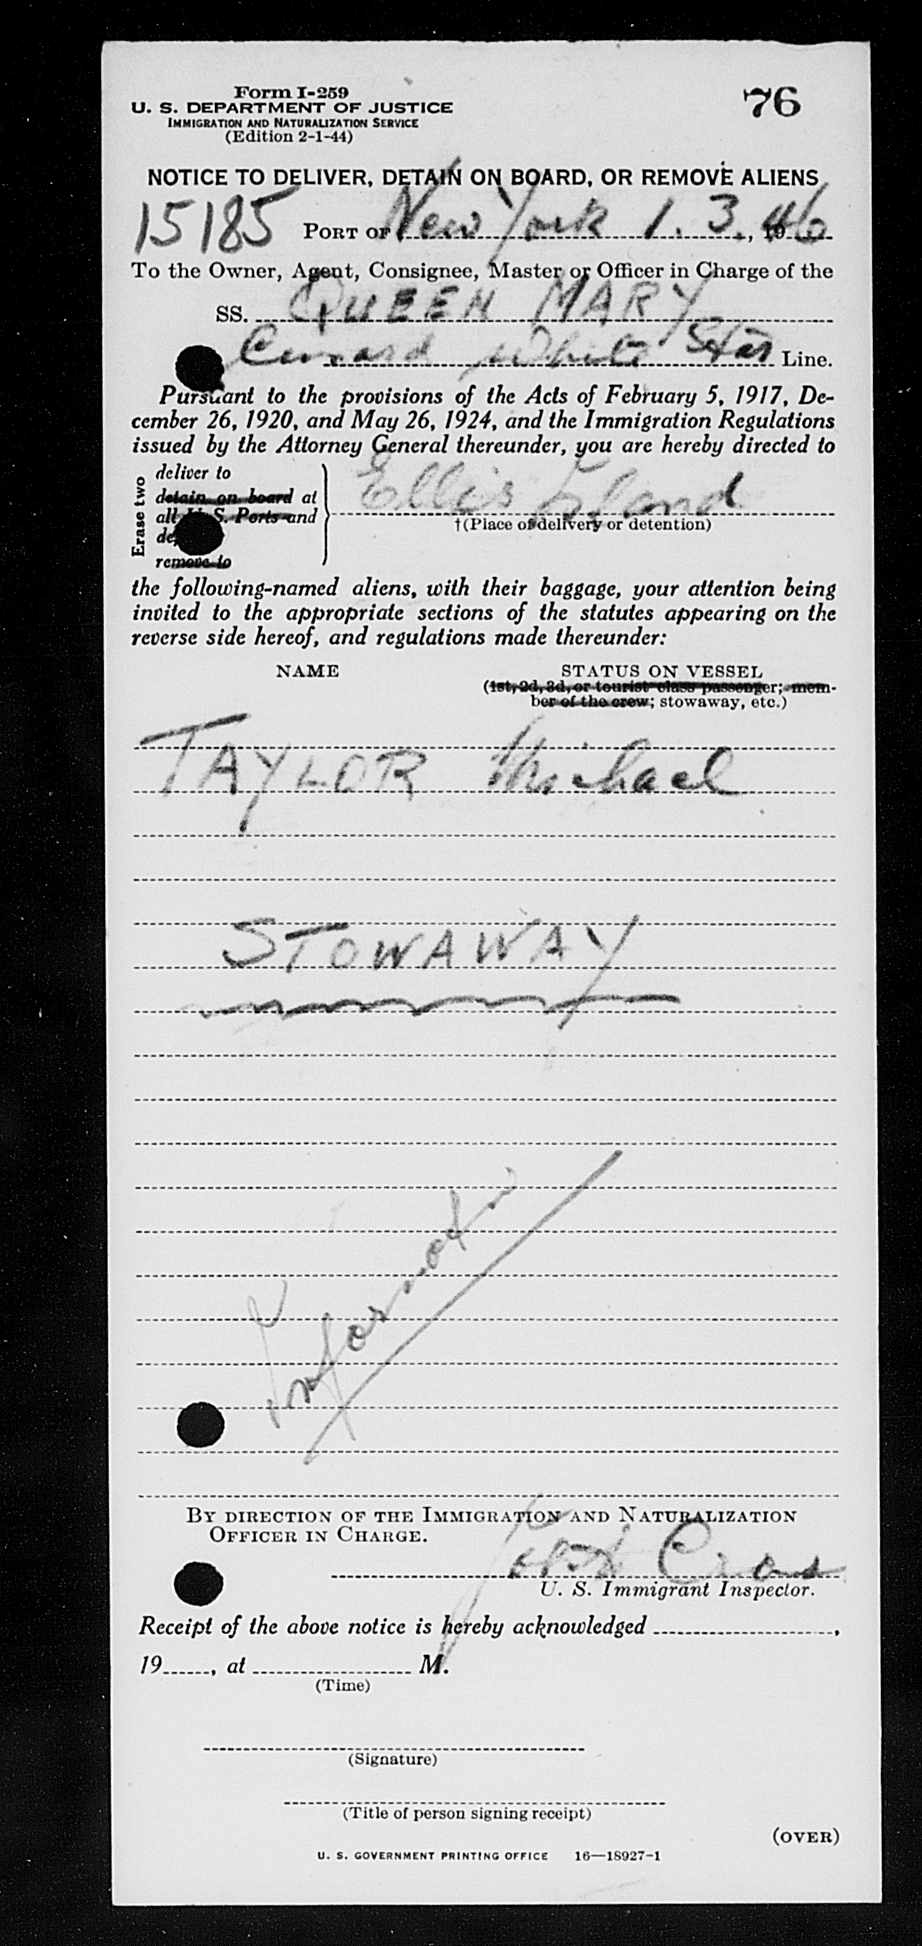 Form I-259
U. S. DEPARTMENT OF JUSTICE
IMMIGRATION AND NATURALIZATION SERVICE
(Edition 2-1-44)
76
NOTICE TO DELIVER, DETAIN ON BOARD, OR REMOVE ALIENS
15185 PORT OF New York 1.3., 1946
To the Owner, Agent, Consignee, Master or Officer in Charge of the
SS. QUEEN MARY
Cunard White Star Line.
Pursuant to the provisions of the Acts of February 5, 1917, De-
cember 26, 1920, and May 26, 1924, and the Immigration Regulations
issued by the Attorney General thereunder, you are hereby directed to
Erase two
deliver to
detain on board at
all U. S. Ports and
remove to
Ellis Island
†(Place of delivery or detention)
the following-named aliens, with their baggage, your attention being
invited to the appropriate sections of the statutes appearing on the
reverse side hereof, and regulations made thereunder:
NAME STATUS ON VESSEL
(1st, 2d, 3d, or tourist class passenger; mem-
ber of the crew; stowaway, etc.)
TAYLOR Michael
STOWAWAY
BY DIRECTION OF THE IMMIGRATION AND NATURALIZATION
OFFICER IN CHARGE.
U. S. Immigrant Inspector.
Receipt of the above notice is hereby acknowledged ,
19 , at M.
(Time)
(Signature)
(Title of person signing receipt)
(OVER)
U. S. GOVERNMENT PRINTING OFFICE 16—18927-1